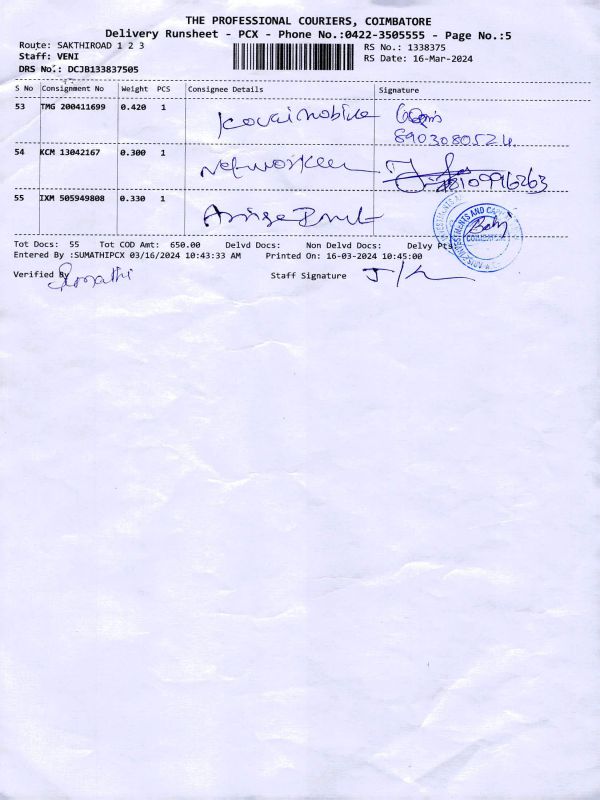 THE PROFESSIONAL COURIERS, COIMBATORE
Delivery Runsheet - PCX - Phone No.:0422-3505555 - Page No.:5
Route: SAKTHIROAD 1 2 3
RS No.: 1338375
Staff: VENI
RS Date: 16-Mar-2024
DRS No.: DCJB133837505
S No Consignment No Weight PCS Consignee Details Signature
53 TMG 200411699 0.420 1 Kovai mobile
8903080524
54 KCM 13042167 0.300 1
55 IXM 505949808 0.330 1
INVESTMENTS AND CAPI
COIMBATORE
Tot Docs: 55 Tot COD Amt: 650.00 Delvd Docs: Non Delvd Docs: Delvy Pts:
Entered By :SUMATHIPCX 03/16/2024 10:43:33 AM Printed On: 16-03-2024 10:45:00
Verified By Sumathi Staff Signature